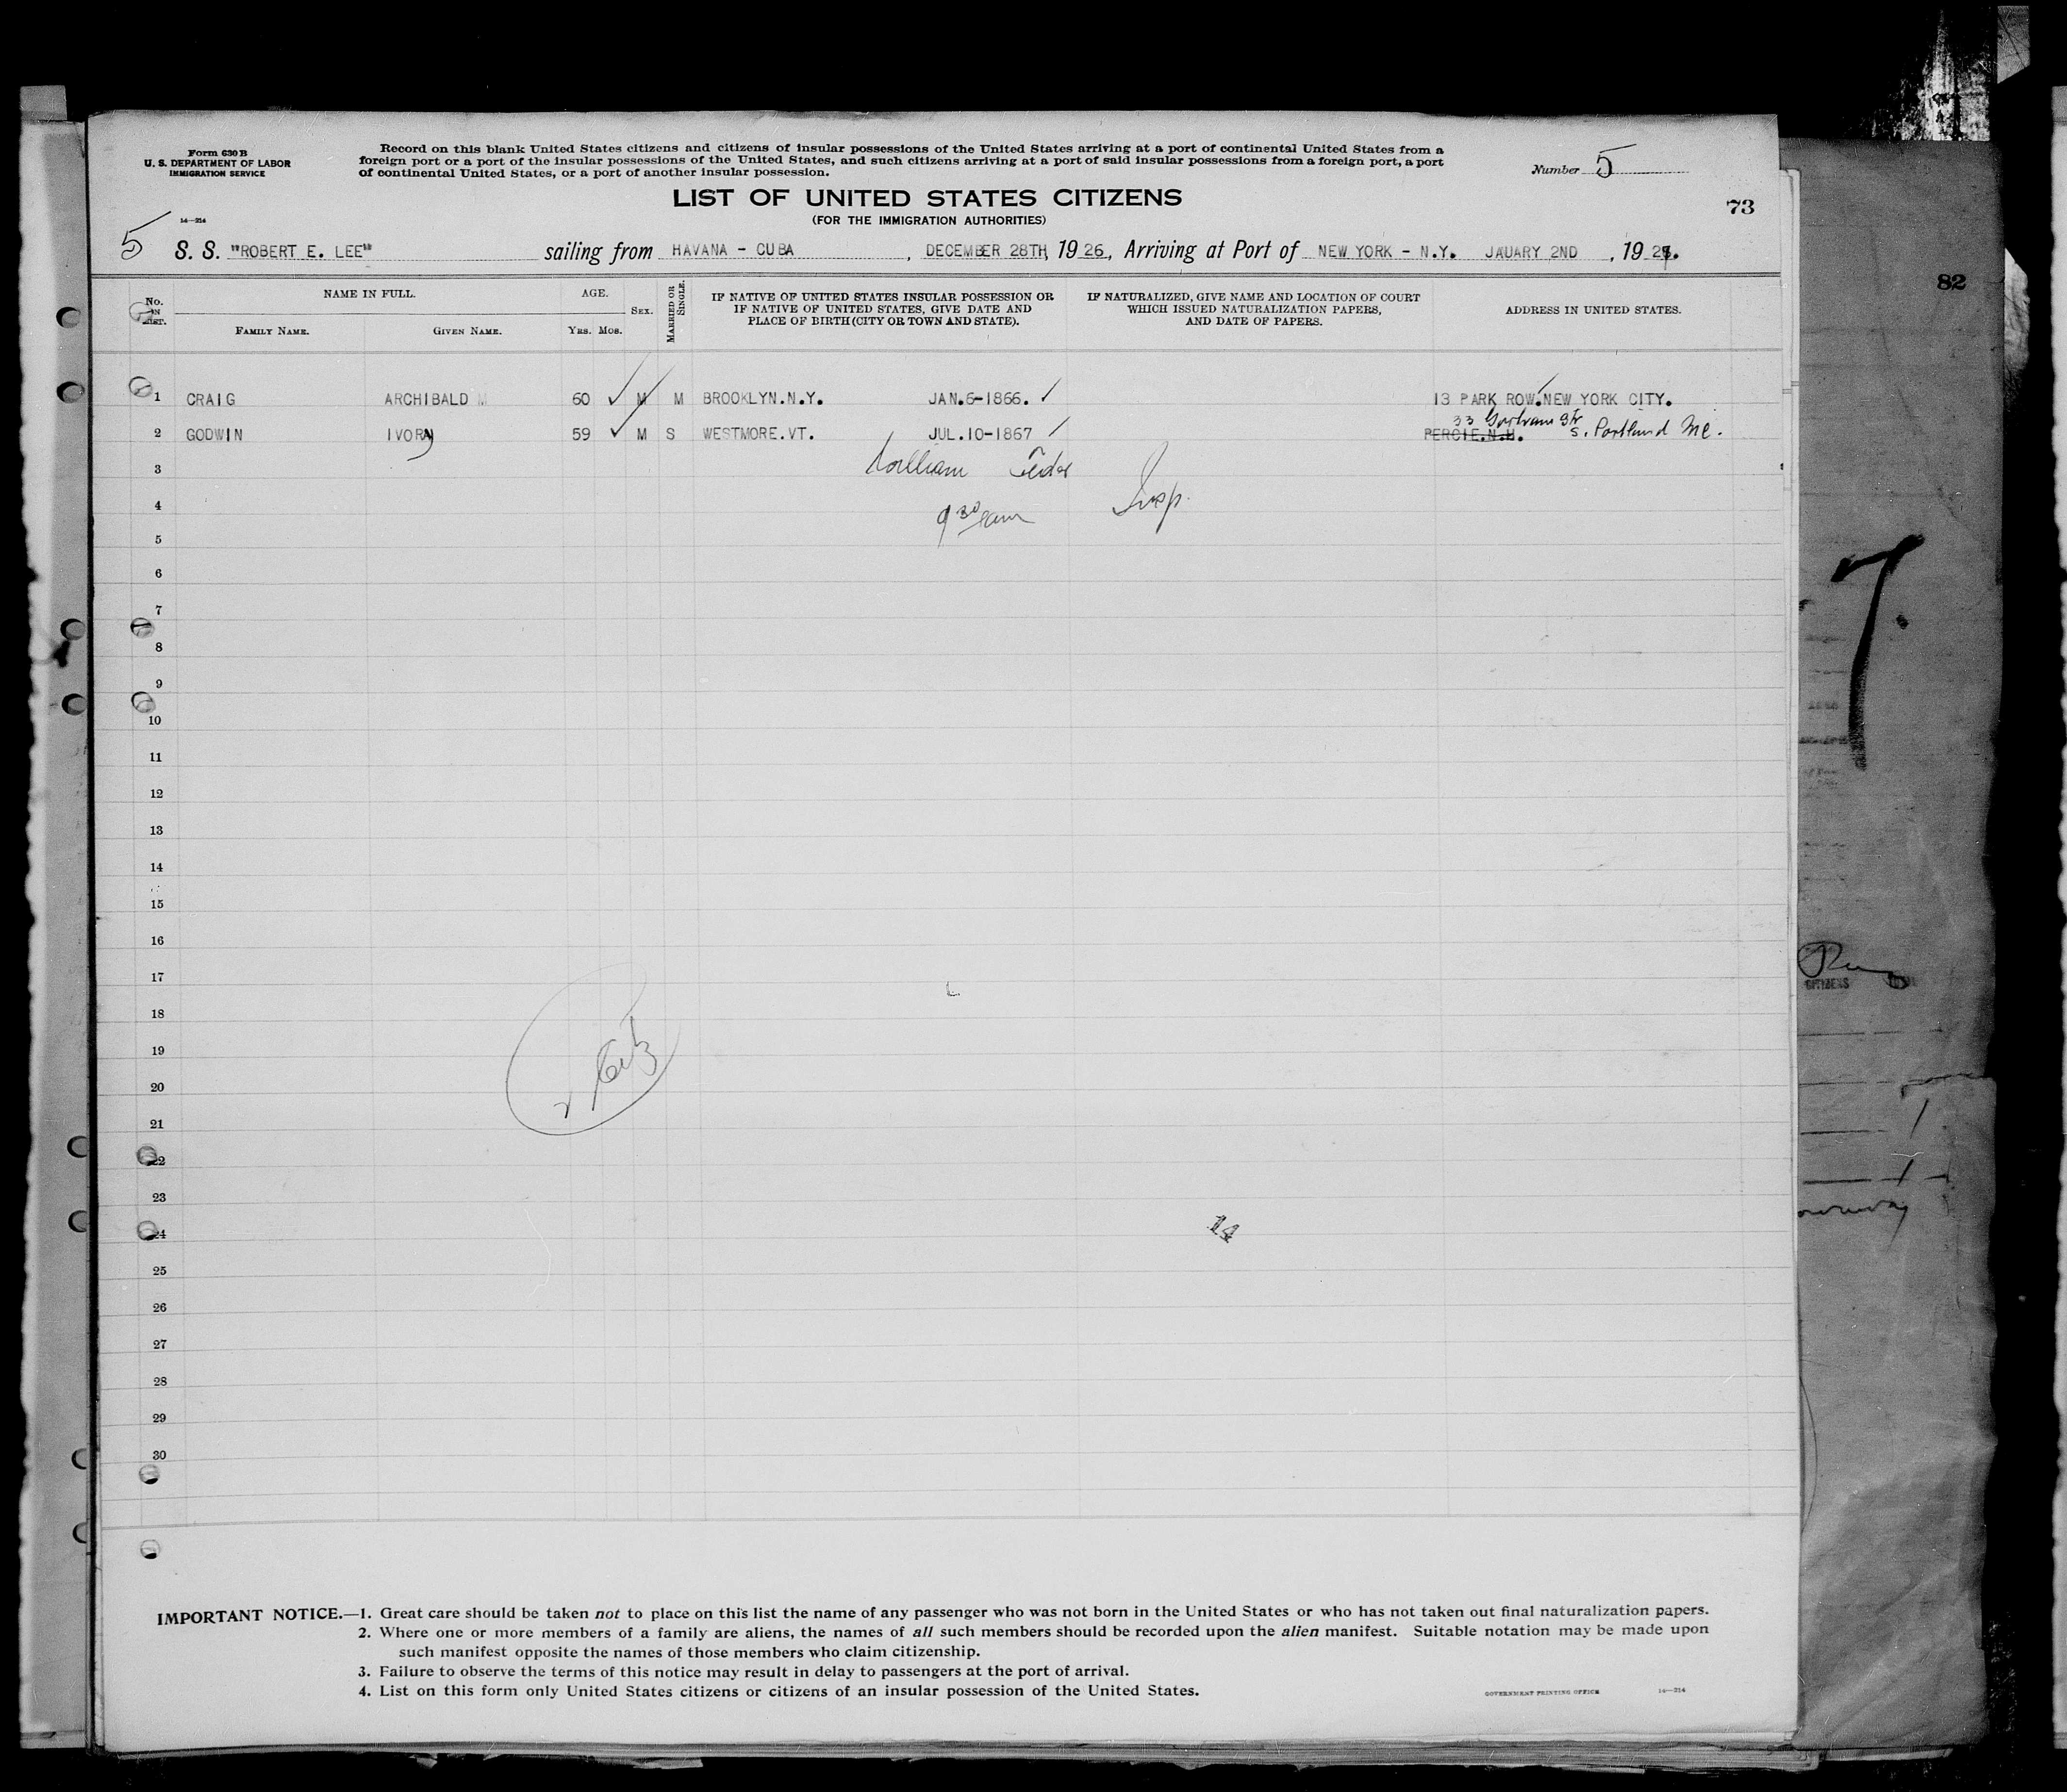 Form 630 B
U. S. DEPARTMENT OF LABOR
IMMIGRATION SERVICE
14—214
Record on this blank United States citizens and citizens of insular possessions of the United States arriving at a port of continental United States from a
foreign port or a port of the insular possessions of the United States, and such citizens arriving at a port of said insular possessions from a foreign port, a port
of continental United States, or a port of another insular possession.
Number 5
LIST OF UNITED STATES CITIZENS
(FOR THE IMMIGRATION AUTHORITIES)
73
82
5 S. S. "ROBERT E. LEE" sailing from HAVANA - CUBA, DECEMBER 28TH, 1926, Arriving at Port of NEW YORK - N.Y. JAUARY 2ND, 1927.
No. IN LIST. NAME IN FULL. AGE. SEX. MARRIED OR SINGLE. IF NATIVE OF UNITED STATES INSULAR POSSESSION OR IF NATIVE OF UNITED STATES, GIVE DATE AND PLACE OF BIRTH (CITY OR TOWN AND STATE). IF NATURALIZED, GIVE NAME AND LOCATION OF COURT WHICH ISSUED NATURALIZATION PAPERS, AND DATE OF PAPERS. ADDRESS IN UNITED STATES.
FAMILY NAME. GIVEN NAME. YRS. MOS.
1 CRAIG ARCHIBALD M 60 ✓ M M BROOKLYN.N.Y. JAN.6-1866. ✓ 13 PARK ROW.NEW YORK CITY.
33 Str
2 GODWIN IVORY 59 ✓ M S WESTMORE.VT. JUL.10-1867 ✓ PERCIE.N.H. S. Portland Me.
3 William
4 9 30 am Insp.
5
6
7
8
9
10
11
12
13
14
15
16
17
18
19
20
21
22
23
24
25
26
27
28
29
30
2 Citz
14
7.
CITIZENS
IMPORTANT NOTICE.—1. Great care should be taken not to place on this list the name of any passenger who was not born in the United States or who has not taken out final naturalization papers.
2. Where one or more members of a family are aliens, the names of all such members should be recorded upon the alien manifest. Suitable notation may be made upon
such manifest opposite the names of those members who claim citizenship.
3. Failure to observe the terms of this notice may result in delay to passengers at the port of arrival.
4. List on this form only United States citizens or citizens of an insular possession of the United States.
GOVERNMENT PRINTING OFFICE 14—214